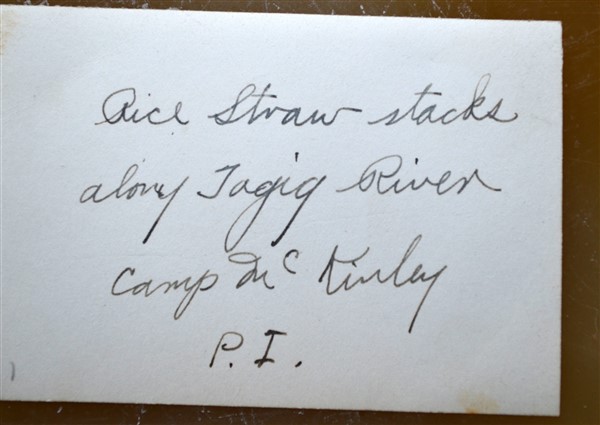 Rice Straw stacks
along Tagig River
Camp Mc Kinley
P.I.